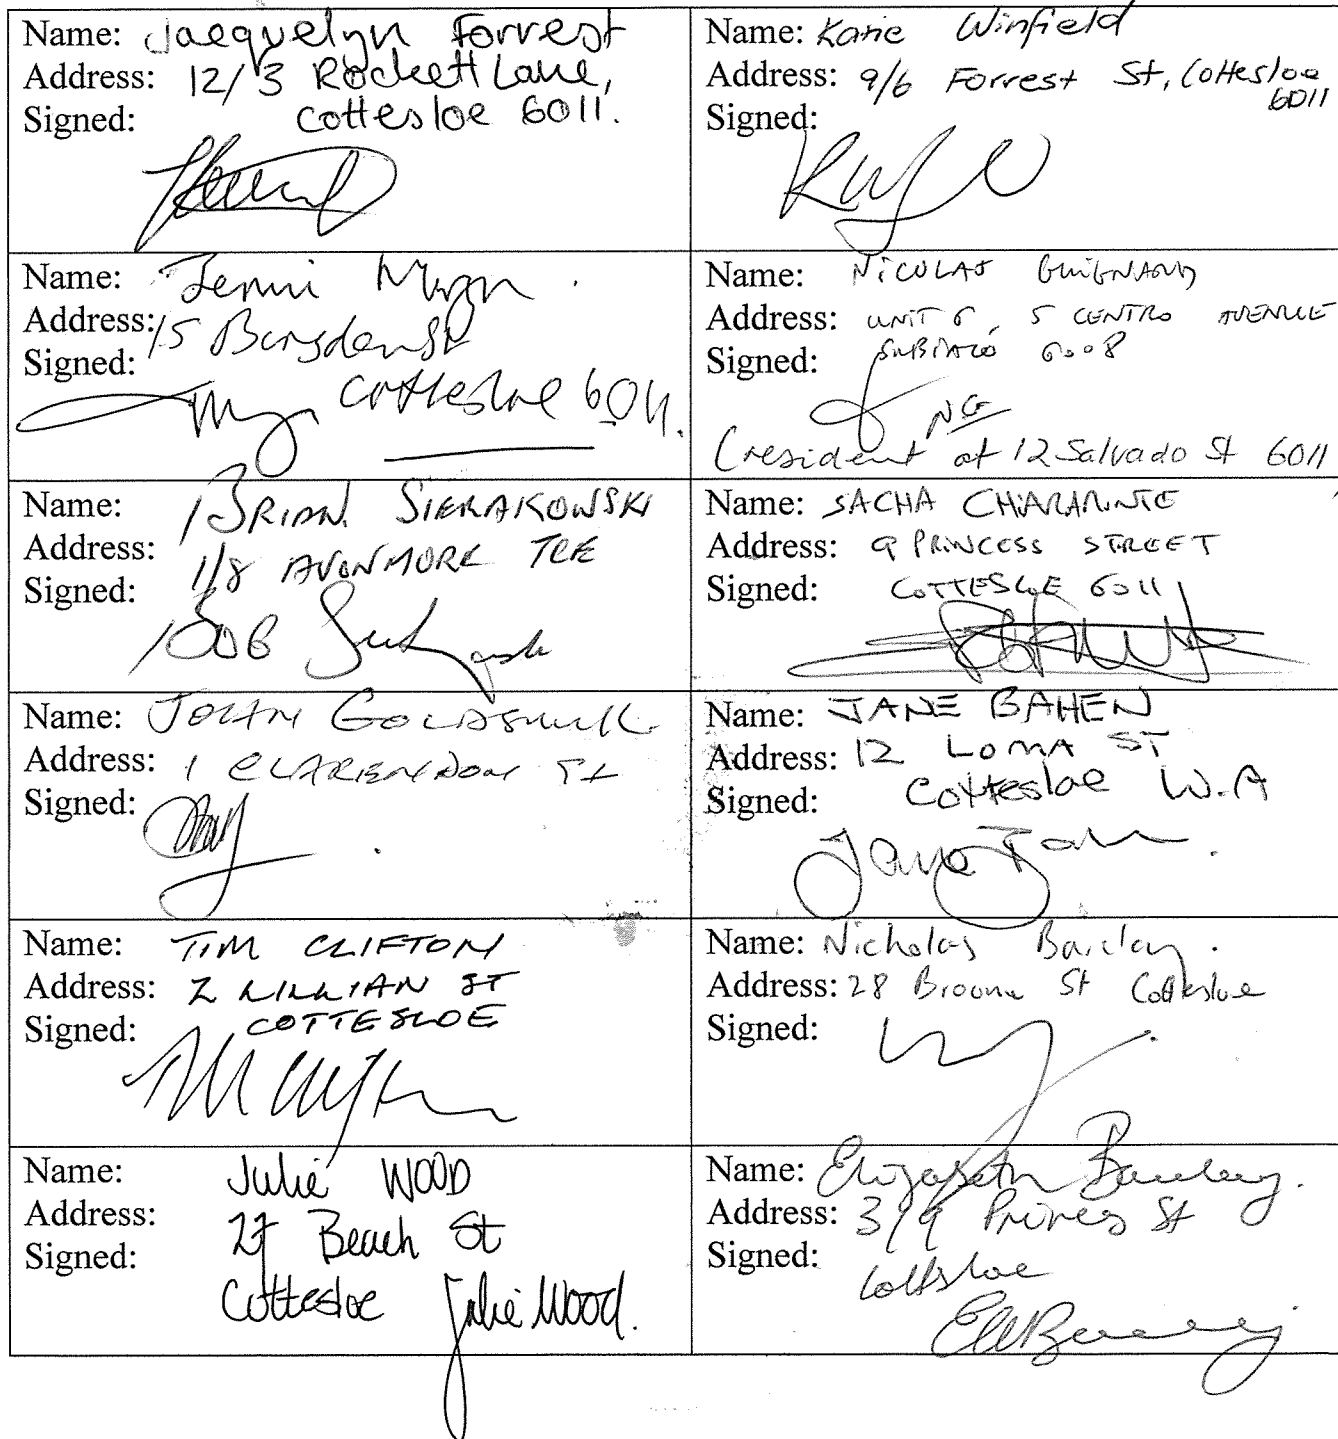 Name: Jacquelyn Forrest
Address: 12/3 Rockett Lane,
Signed: Cottesloe 6011.
Name: Katie Winfield
Address: 9/6 Forrest St, Cottesloe
6011
Signed:
Name: Jenni
Address: 15 St
Signed:
Cottesloe 6011.
Name: NICOLAS GUIGNARD
Address: UNIT 6, 5 CENTRO AVENUE
Signed: SUBIACO 6008
NG
(resident at 12 Salvado St 6011
Name: BRIAN SIERAKOWSKI
Address: 1/8 AVONMORE TCE
Signed:
Name: SACHA
Address: 9 PRINCESS STREET
Signed: COTTESLOE 6011
Name: JOHN
Address: 1 CLARENDON St
Signed:
Name: JANE BAHEN
Address: 12 LOMA ST
Signed: Cottesloe W.A
Jane Bahen
Name: TIM CLIFTON
Address: 2 LILLIAN ST
Signed: COTTESLOE
Name: Nicholas Barclay.
Address: 28 Broome St Cottesloe
Signed:
Name: Julie WOOD
Address: 27 Beach St
Signed:
Cottesloe Julie Wood.
Name: Elizabeth
Address: 3/9 Princes St
Signed: Cottsloe